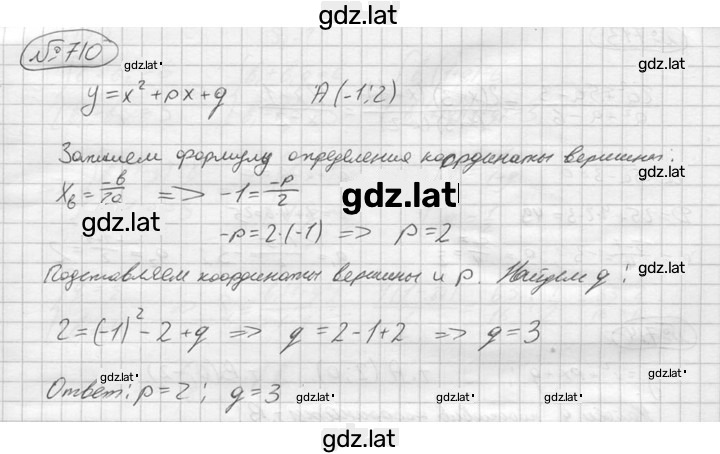 gdz.lat
№ 710
gdz.lat
gdz.lat
y = x² + px + q    A(-1; 2)
Запишем формулу определения координаты вершины:
gdz.lat
xв = -b/2a => -1 = -p/2
gdz.lat
gdz.lat
-p = 2·(-1) => p = 2
Подставляем координаты вершины и p. Найдем q:
gdz.lat
2 = (-1)² - 2 + q => q = 2 - 1 + 2 => q = 3
gdz.lat
gdz.lat
Ответ: p = 2; q = 3
gdz.lat
gdz.lat
gdz.lat
gdz.lat